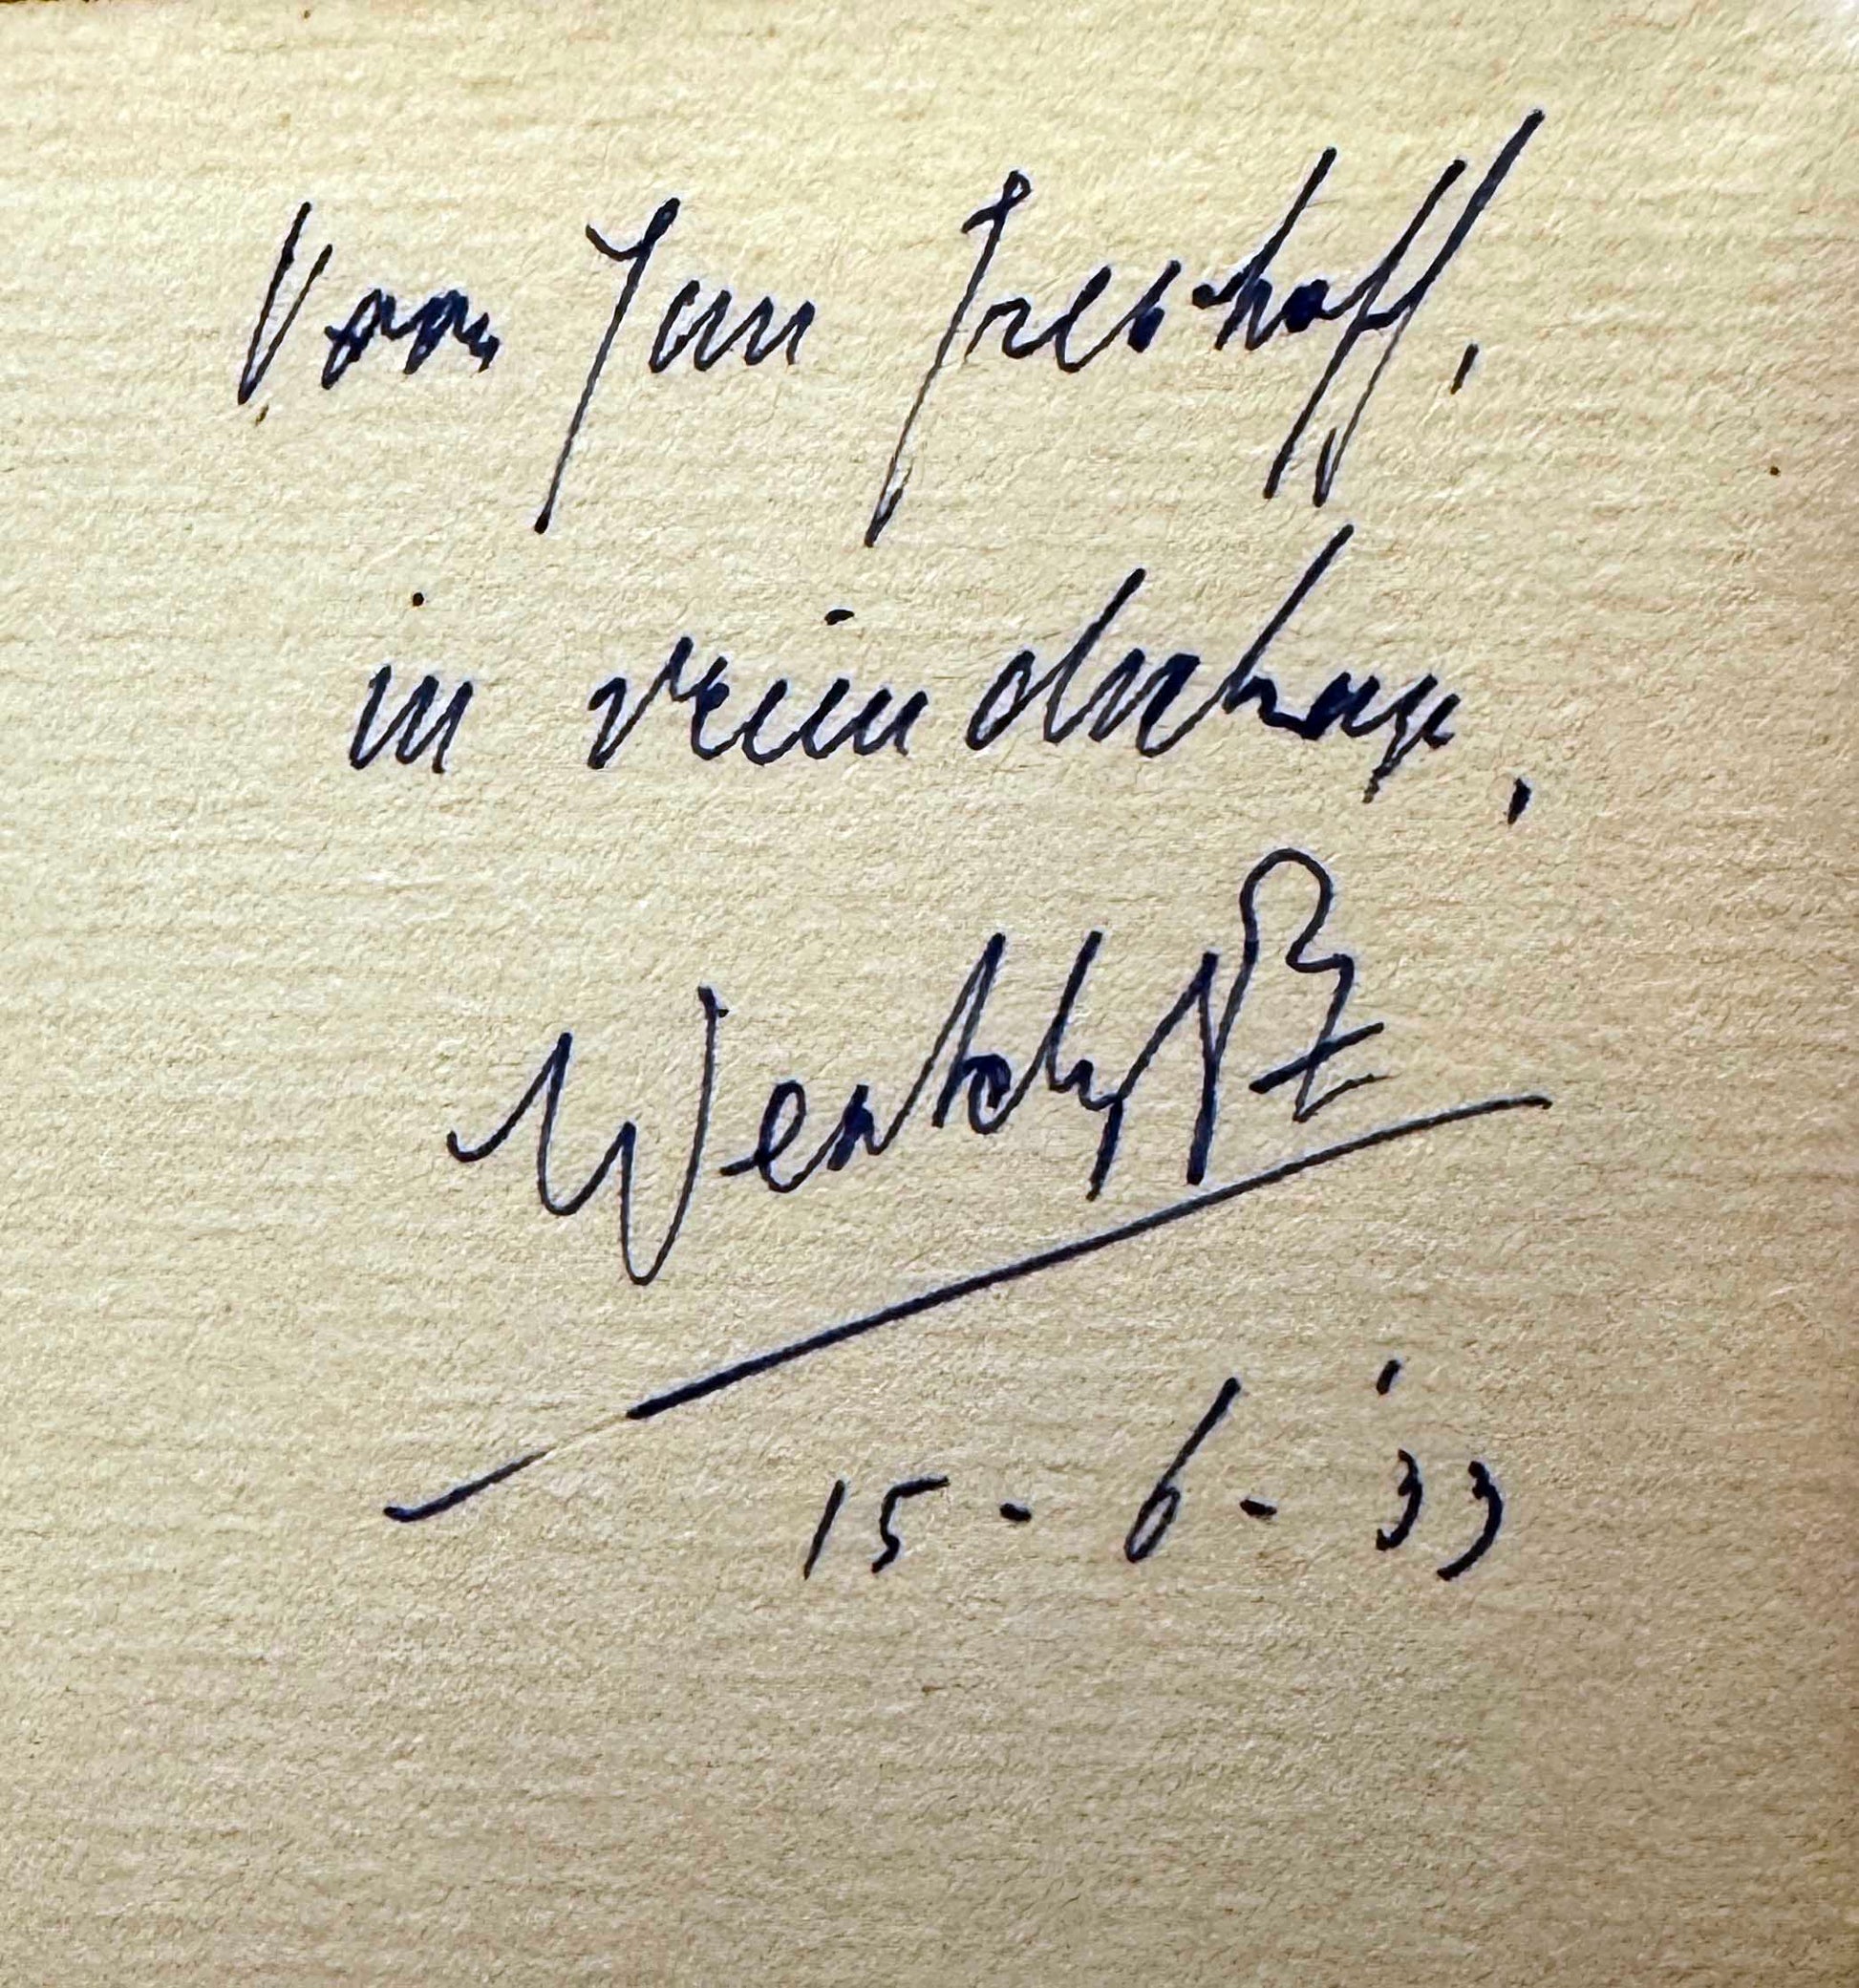 Voor Jan Greshoff,
in vriendschap,
15-6-'33